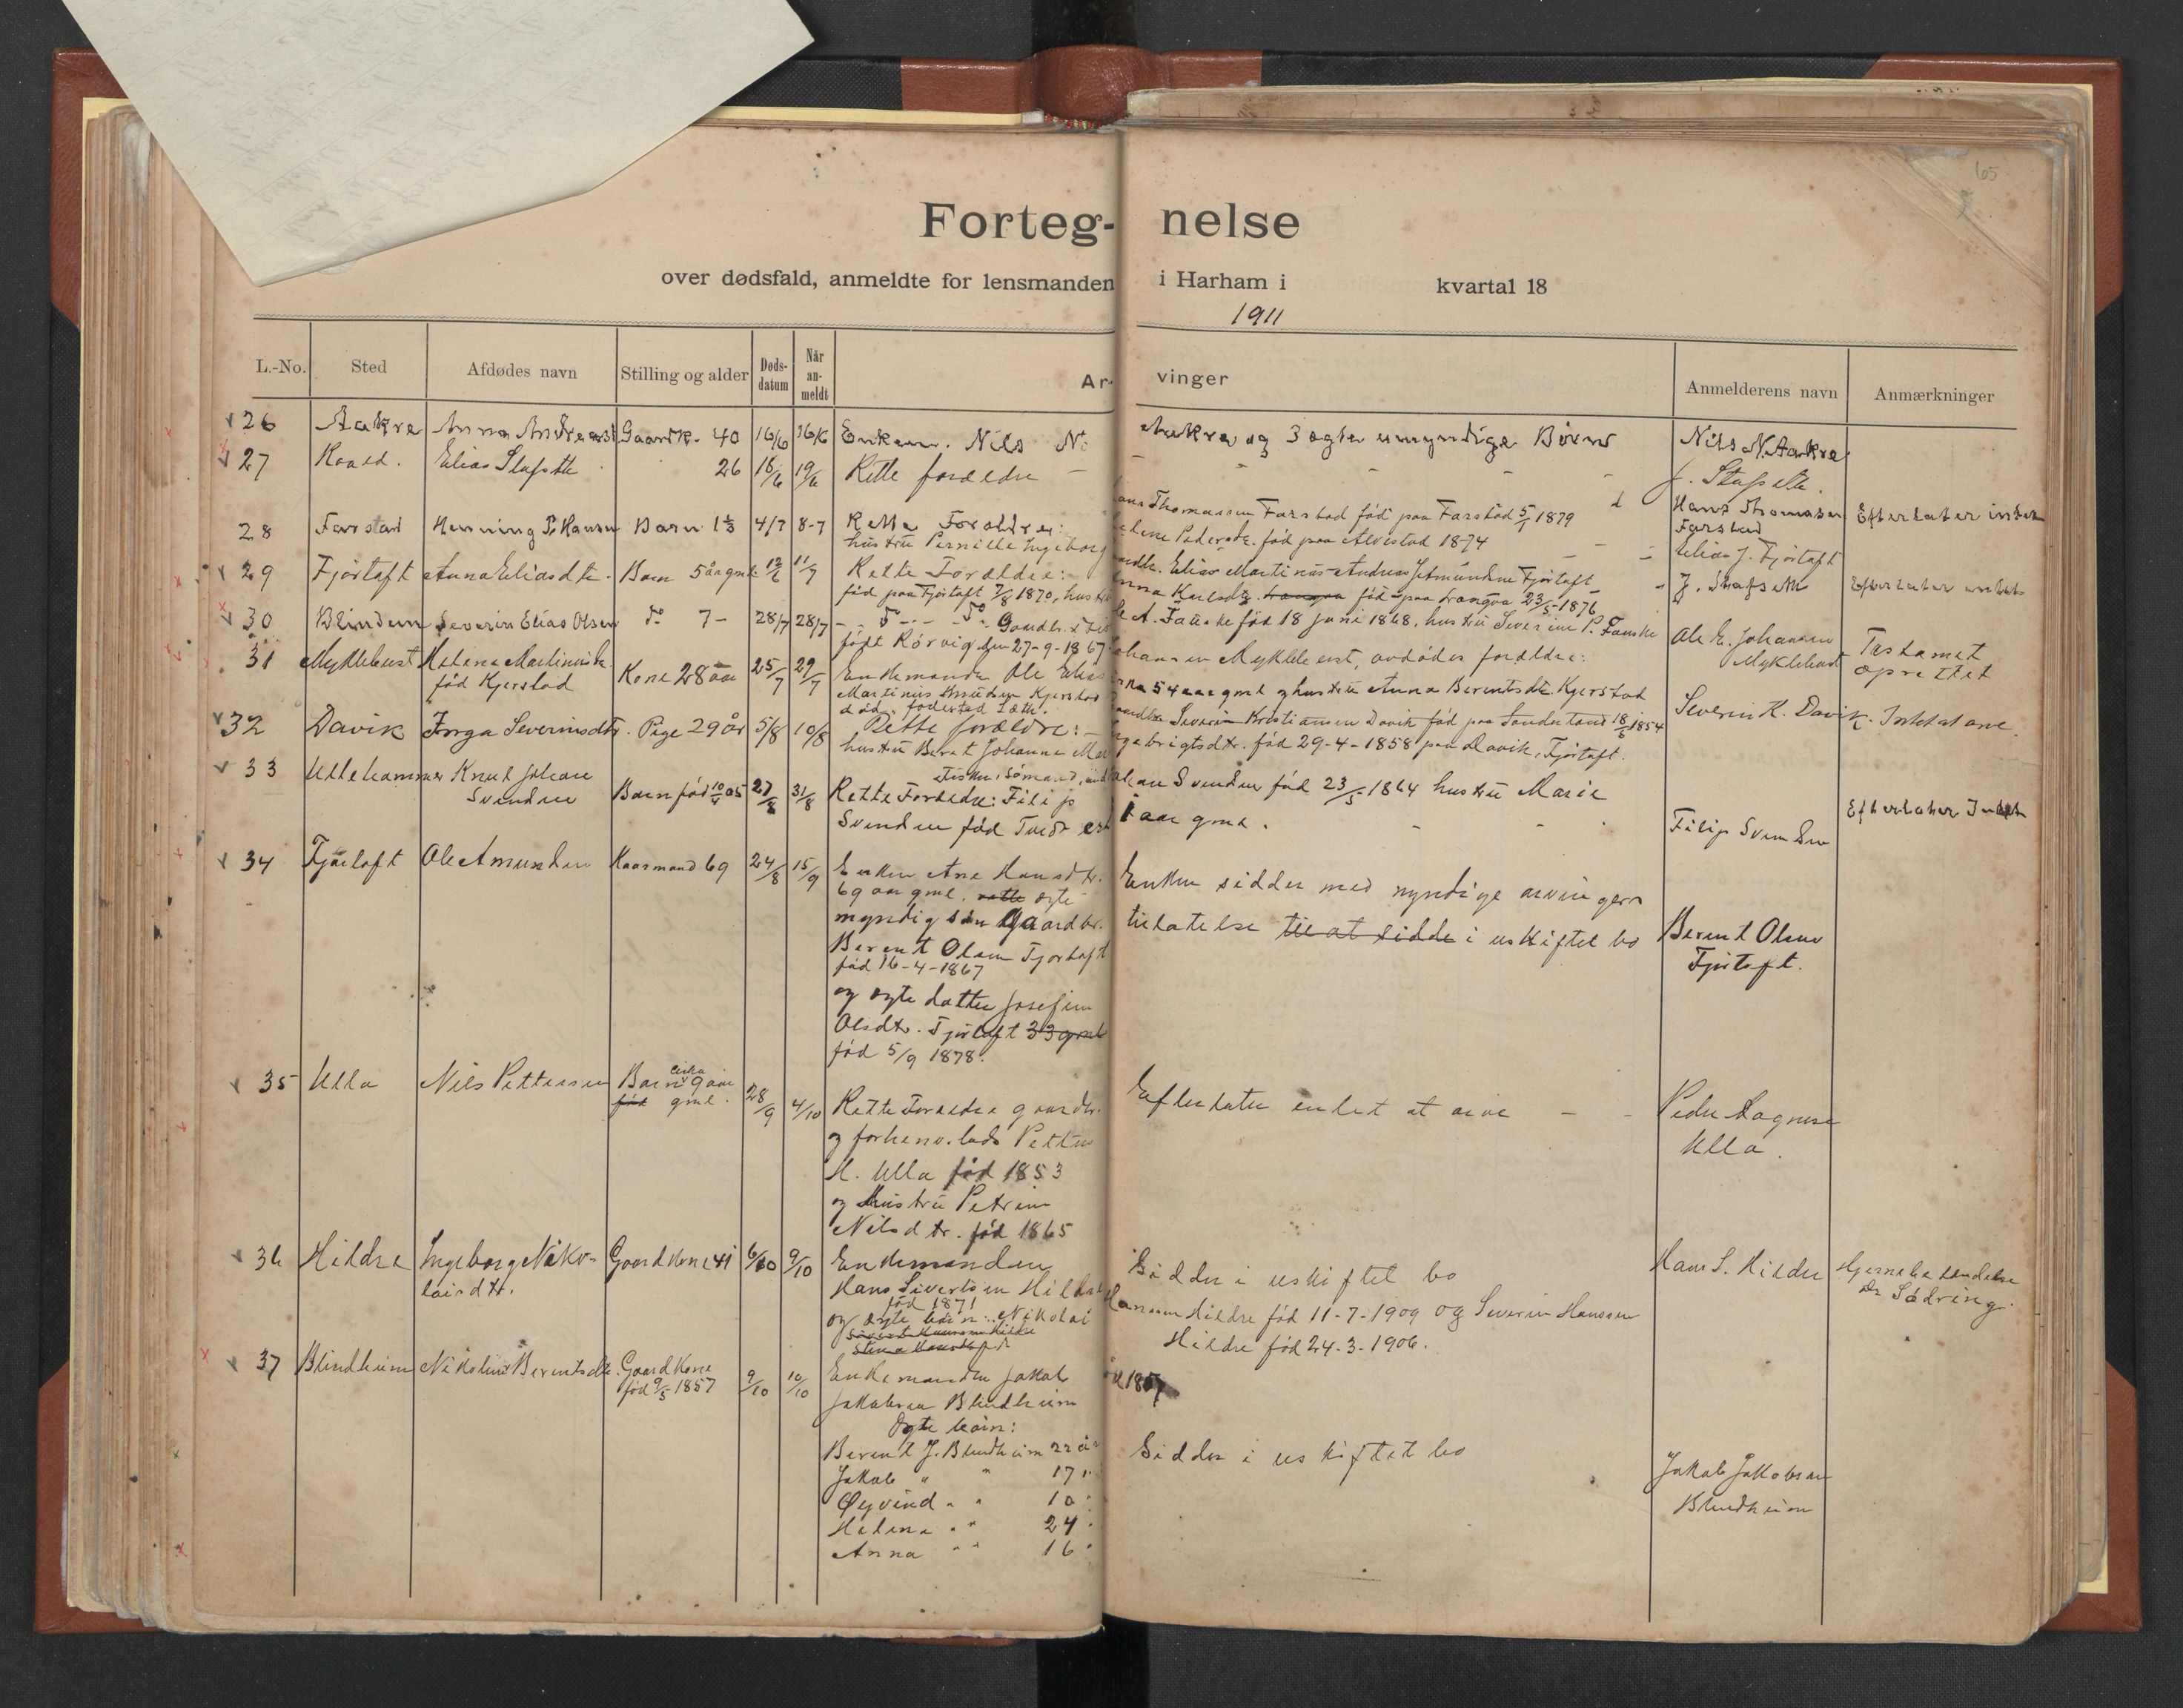 65
Forteg- nelse
over dødsfald, anmeldte for lensmanden i Harham i kvartal 18
1911
L.-No. Sted Afdødes navn Stilling og alder Døds-datum Når an-meldt Ar- vinger Anmelderens navn Anmærkninger
26 Aakre Anna Andreasd Gaardk. 40 16/6 16/6 Enkem. Nils N. Aakre og 3 ægte umyndige Børn Nils N. Aakre
27 Elias Slafseth 26 16/6 19/6 Rette forældre J. Slafseth.
28 Farstad Henning P. Hansen Barn 1 1/3 4/7 8-7 Rette Forældre: Hans Thomassen Farstad fød paa Farstad 5/1 1879 Hans Thomasen Efterlater intet
hustru Pernille Ingeborg Pedersdtr. fød paa Alvestad 1874 Farstad
29 Fjørtoft Anna Eliasdtr. Barn 5 år gml. 12/6 11/7 Rette Forældre: Gaardbr. Elias Martinus Andreas Amundsen Fjørtoft Elias J. Fjørtoft
fød paa Fjørtoft 7/8 1870, hustru fød paa Longva 23/5-1876 J. Slafseth Efterlater intet
30 Blindem Severin Elias Olsen do 7 - 28/7 28/7 do do Gaardbr. A. Fauske fød 18 juni 1868, hustru Severine P. Fauske
født Rørvig den 27-9-1867
31 Myklebust Helene Martinusdtr. Kone 28 aar 25/7 29/7 Enkemanden Ole Elias Johansen Myklebust, avdødes forældre: Ole E. Johansen Testamet
fød Kjerstad Myklebust oprettet
Martinus Knudsen Kjerstad 54 aar gml og hustru Anna Berentsdtr. Kjerstad
32 Davik Inga Severinsdtr. Pige 29 år 5/8 10/8 Rette forældre: Gaardbr. Severin Kristiansen Davik fød paa Søndeland 18/6 1854 Severin K. Davik.
hustru Berit Johanne fød 29-4-1858 paa Davik, Fjørtoft.
33 Ullehammer Knut Johan Barn fød 10/4 05 27/8 31/8 Fisker, sømand,
Svendsen Rette Forældre: Filip Johan Svendsen fød 23/5-1864 hustru Marie
Svendsen fød aar gml. Filip Svendsen Efterlater Intet
34 Fjørtoft Ole Amundsen Kaarmand 69 24/8 15/9 Enken Ane Hansdtr. Enken sidder med myndige arvingers
69 aar gml. rette ægte
myndig søn Gaardbr. tilatelse til at sidde i uskiftet bo Berent Olsen
Berent Olsen Fjørtoft Fjørtoft.
fød 16-4-1867
og ægte datter Josefine
Olsdtr. Fjørtoft 33 gml
fød 5/9 1878.
35 Ulla Nils Pettersen Barn cirka 9 aar 28/9 4/10 Rette Forældre gaardbr. Efterlater intet at arve Peder Magnus
fød gml. og forhenv. lods Petter Ulla.
M. Ulla fød 1853
og hustru Petrine
Nilsdtr. fød 1865
36 Hildre Ingeborg Niko- Gaardkone 41 6/10 9/10 Enkemanden Sidder i uskiftet bo Hans S. Hildre Hjernebetændelse
laisdtr. Hans Sivertsen Hildre Dr. Sødring.
fød 1871
og ægte børn: Nikolai Hanssen Hildre fød 11-7-1909 og Severin Hanssen
Hildre fød 24-3-1906.
37 Blindheim Nikoline Berentsdtr. Gaardkone 9/10 10/10 Enkemanden Jakob fød 1857
fød 9/5 1857 Jakobsen Blindheim
Ægte børn:
Berent J. Blindheim 22 år Sidder i uskiftet bo
Jakob " " 17 " Jakob Jakobsen
Øyvind " " 10 " Blindheim
Helene " " 24 "
Anna " " 16 "